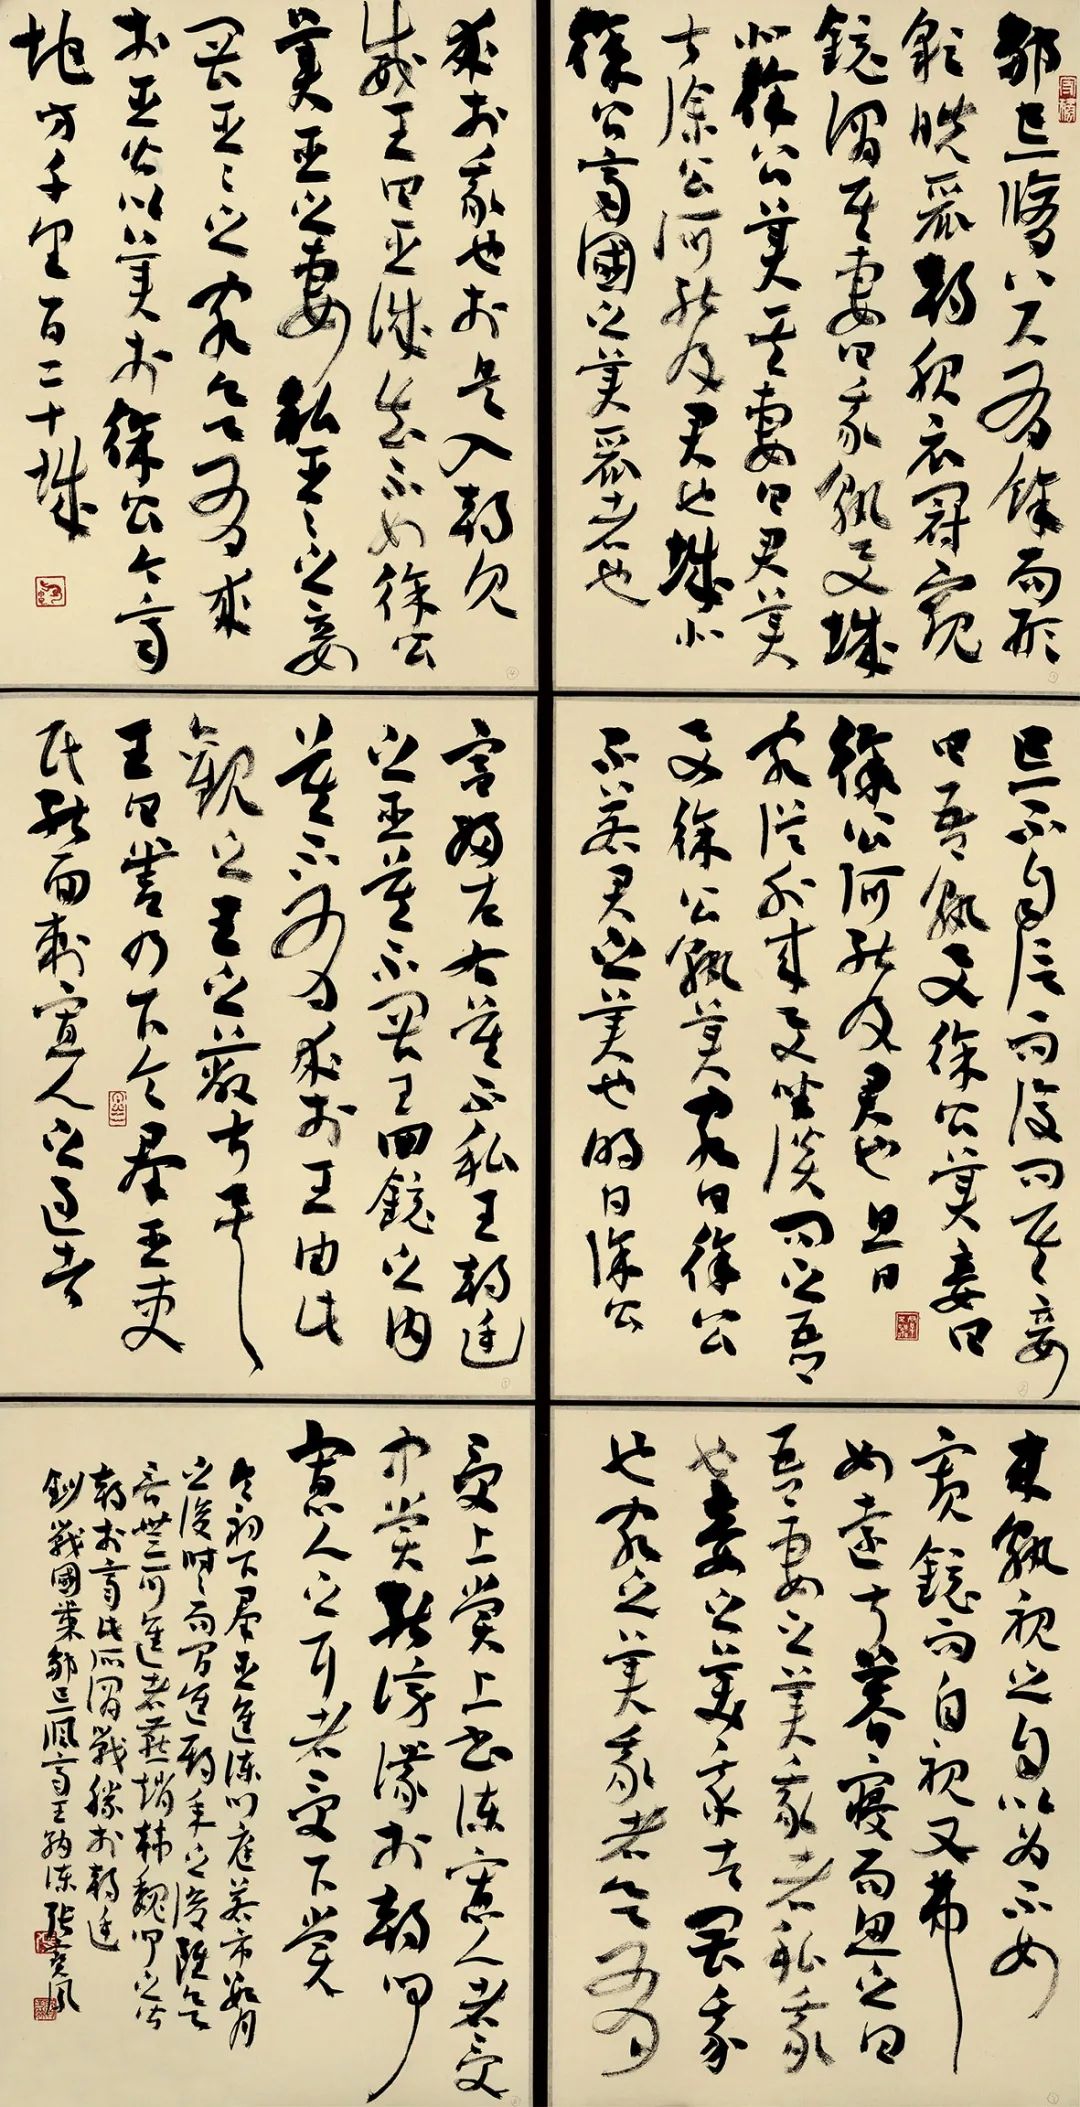 邹忌修八尺有余而形
貌昳丽朝服衣冠窥
镜谓其妻曰我孰与城
北徐公美其妻曰君美
甚徐公何能及君也城北
徐公齐國之美丽者也
忌不自信而复问其妾
曰吾孰与徐公美妾曰
徐公何能及君也旦日
客从外来与坐谈问之吾
与徐公孰美客曰徐公
不若君之美也明日徐公
来孰视之自以为不如
窥镜而自视又弗
如远甚暮寝而思之曰
吾妻之美我者私我
也妾之美我者畏我
也客之美我者欲有
求于我也于是入朝见
威王曰臣诚知不如徐公
美臣之妻私臣臣之妾
畏臣臣之客欲有求
于臣皆以美于徐公今齐
地方千里百二十城
宫妇左右莫不私王朝廷
之臣莫不畏王四镜之内
莫不有求于王由此
观之王之蔽甚矣
王曰善乃下令群臣吏
民能面刺寡人之过者
受上赏上书谏寡人者受
中赏能谤议于朝
寡人之耳者受下赏
令初下群臣进谏门庭若市数月
之后时时而间进期年之后虽欲
言无可进者燕赵韩魏闻之皆
朝于齐此所谓战胜于朝廷
钞战國策邹忌讽齐王纳谏